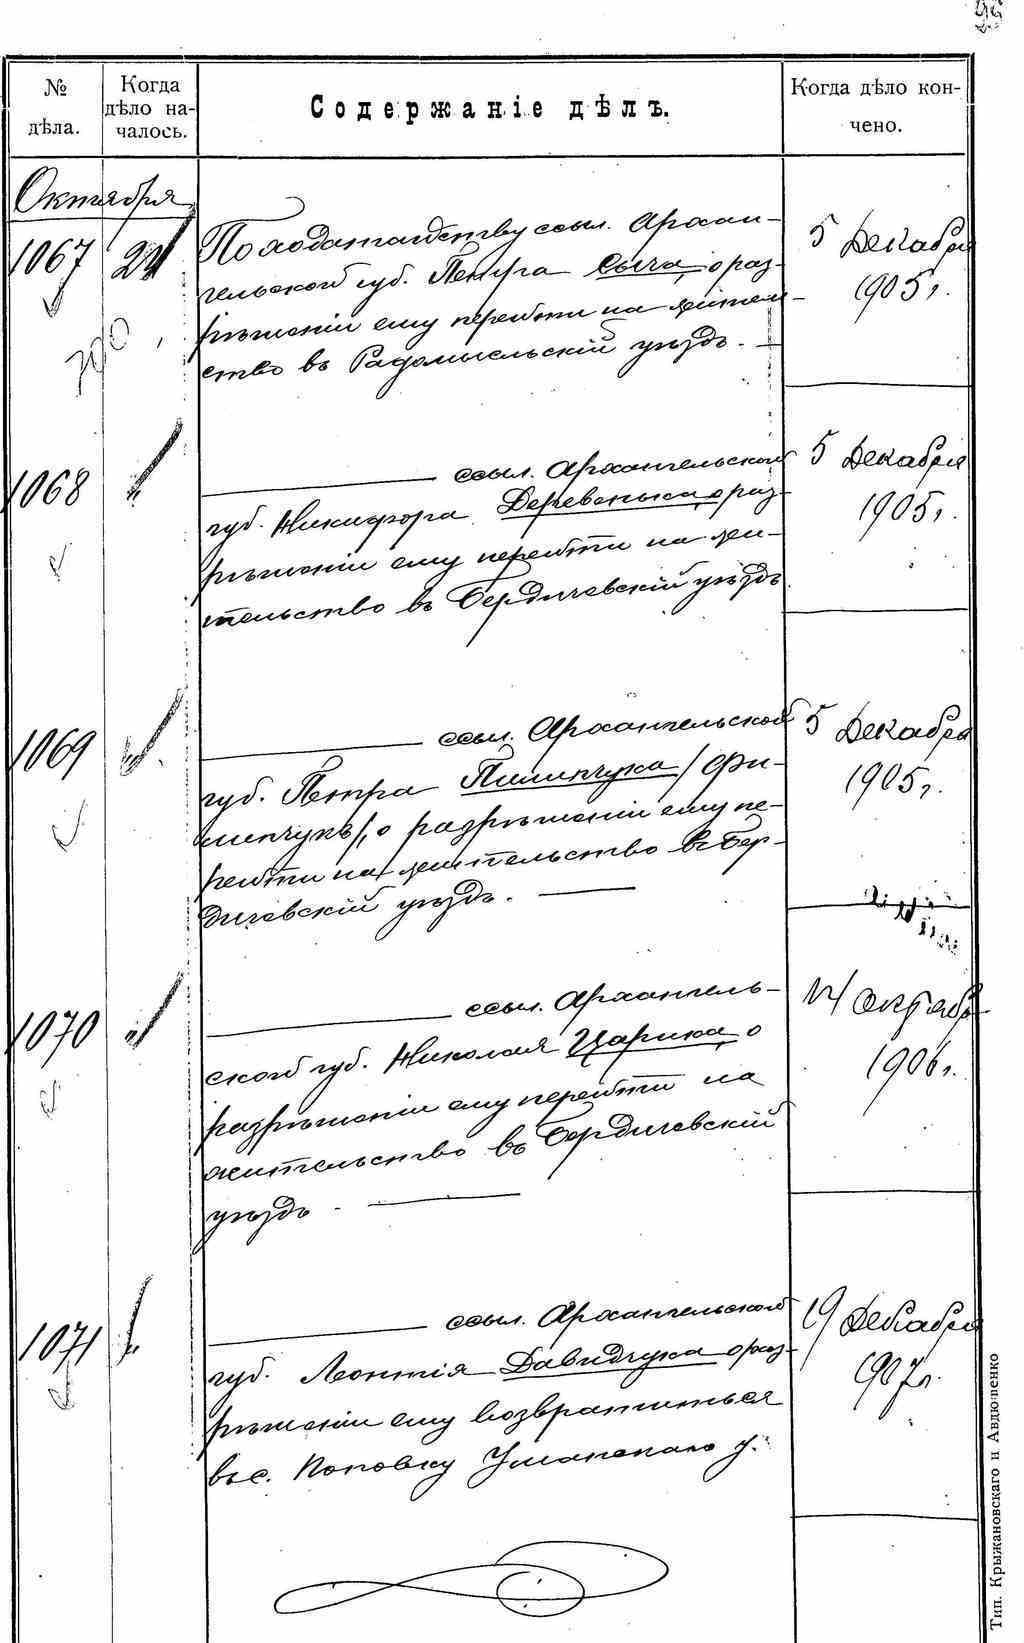 № дѣла.
Когда дѣло на-
чалось.
Содержаніе дѣлъ.
Когда дѣло кон-
чено.
Октября
1067
24
По ходатайству ссыл. Архан-
гельской губ. Петра Сыча, о раз-
рѣшеніи ему перейти на житель-
ство въ Радомысльскій уѣздъ.
5 Декабря
1905 г.
1068
"
ссыл. Архангельской
губ. Никифора Деревенька, о раз-
рѣшеніи ему перейти на жи-
тельство въ Бердичевскій уѣздъ
5 Декабря
1905 г.
1069
"
ссыл. Архангельской
губ. Петра Пилипчука / Фи-
липчукъ/, о разрѣшеніи ему пе-
рейти на жительство въ Бер-
дичевскій уѣздъ.
5 Декабря
1905 г.
1070
"
ссыл. Архангель-
ской губ. Николая Царика, о
разрѣшеніи ему перейти на
жительство въ Бердичевскій
уѣздъ
14 Октября
1906 г.
1071
"
ссыл. Архангельской
губ. Леонтія Давидчука о раз-
рѣшеніи ему возвратиться
въ с. Поповку Уманскаго у.
19 Декабря
1907 г.
Тип. Крыжановскаго и Авдюшенко